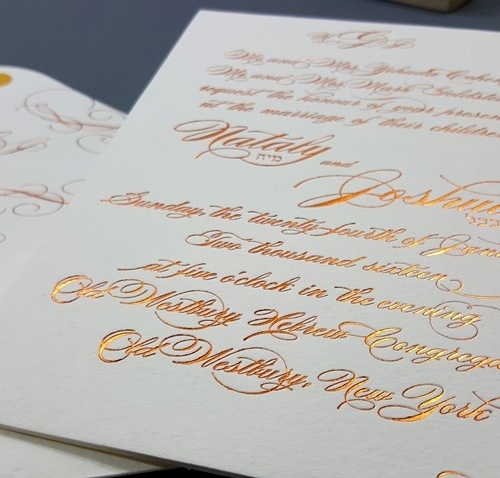 Mr. and Mrs. Yehuda
Mr. and Mrs. Mark
request the honour of your
at the marriage of their children
Nataly
מיה
and
Joshua
Sunday, the twenty fourth of
Two thousand sixteen
at five o'clock in the evening
Old Westbury Hebrew Congrega
Old Westbury, New York